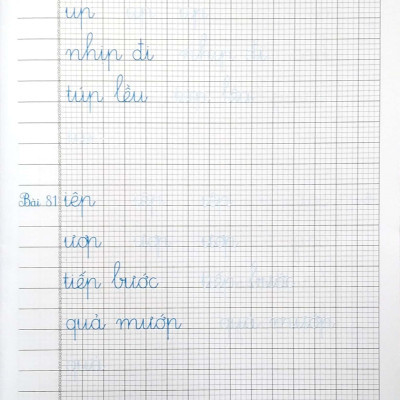 up
nhịp đi
túp lều
Bài 81 iêp
ươp
tiếp bước
quả mướp